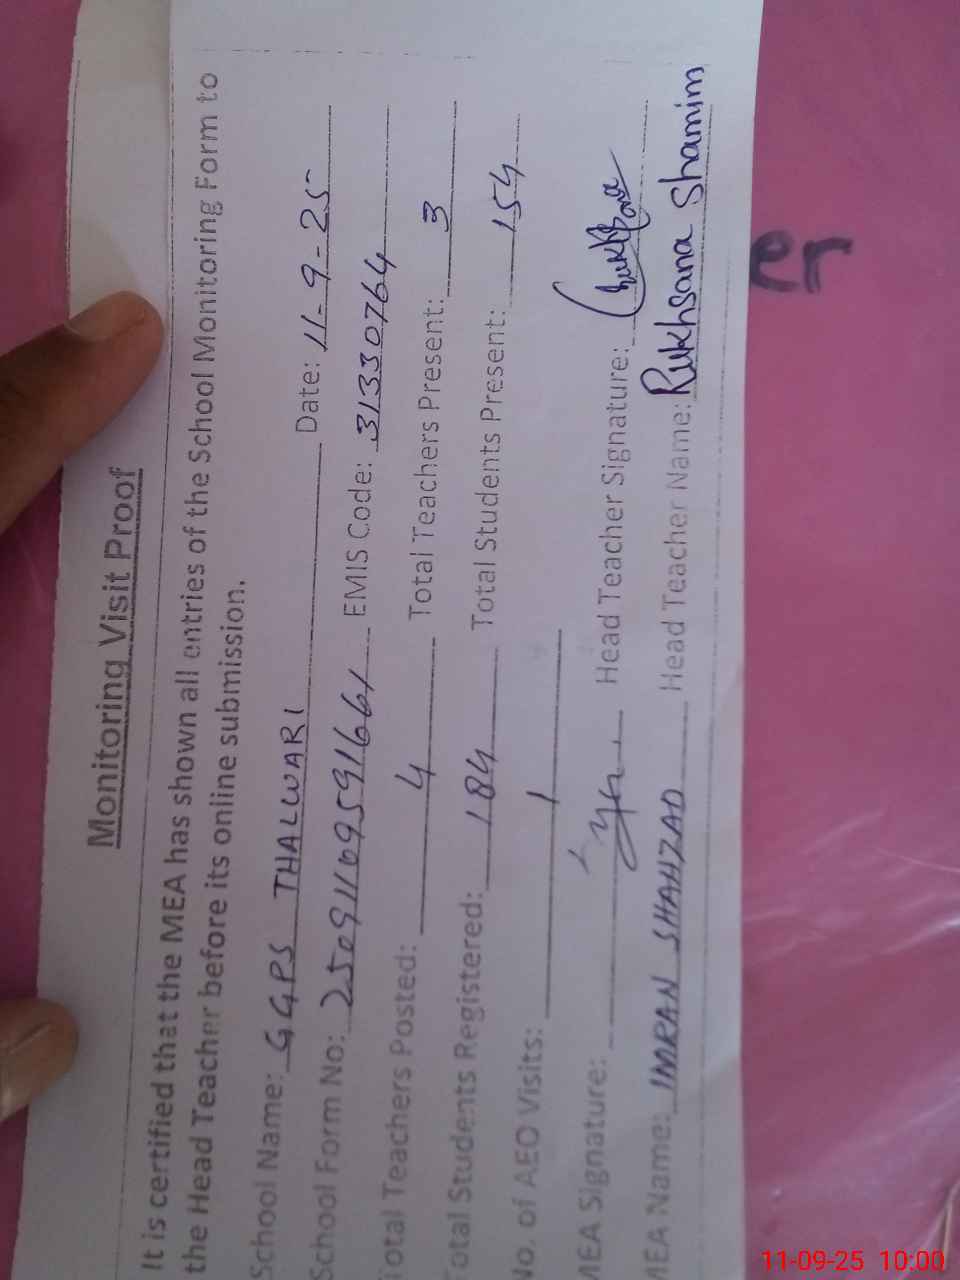 Monitoring Visit Proof
It is certified that the MEA has shown all entries of the School Monitoring Form to
the Head Teacher before its online submission.
School Name: GGPS THALWARI Date: 11-9-25
School Form No: 25091169591661 EMIS Code: 31330764
Total Teachers Posted: 4 Total Teachers Present: 3
Total Students Registered: 184 Total Students Present: 154
No. of AEO Visits: 1
MEA Signature: Head Teacher Signature:
MEA Name: IMRAN SHAHZAD Head Teacher Name: Rukhsana Shamim
11-09-25 10:00